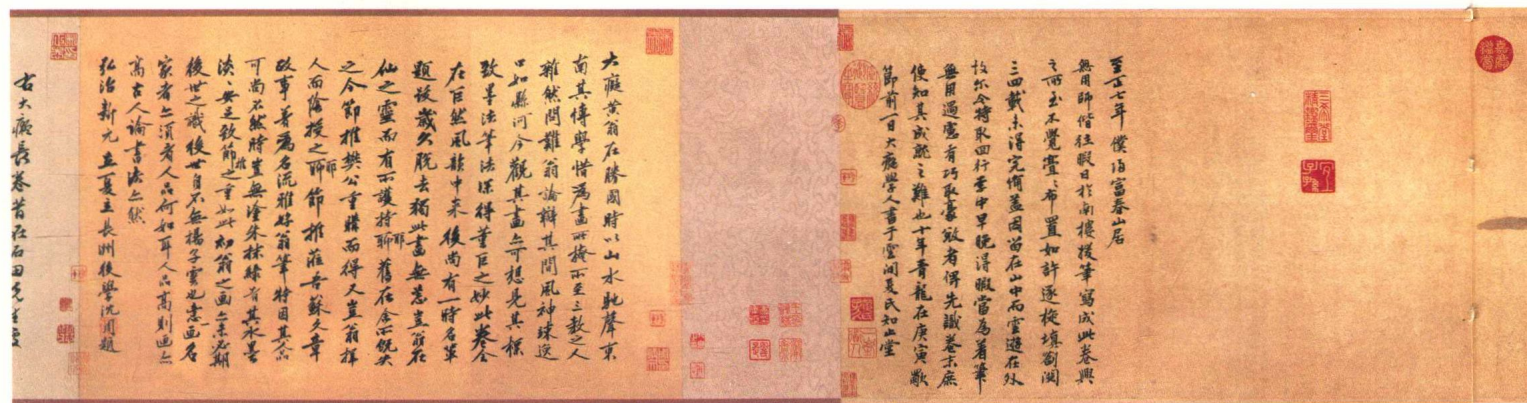 至正七年僕歸富春山居
無用師偕往暇日於南樓援筆寫成此卷興
之所至不覺亹亹布置如許逐旋填劄閱
三四載未得完備蓋因留在山中而雲遊在外
故尔今特取回行李中早晚得暇當為着筆
無用過慮有巧取豪敓者俾先識卷末庶
使知其成就之難也十年青龍在庚寅歜
節前一日大癡學人書于雲間夏氏知止堂
大癡黃翁在勝國時以山水馳聲東
南其博學惜為畫所掩所至三教之人
雜然問難翁論辯其間風神竦逸
口如懸河今觀其畫亦可想見其標
致墨法筆法深得董巨之妙此卷全
在巨然風韻中來後尚有一時名筆
題跋歲久脫去獨此畫無恙豈翁在
仙之靈而有所護持耶舊在余所既失
之今節推樊公重購而得又豈翁擇
人而陰授之耶節推蒞吾蘇文章
政事著為名流雅好翁筆特因其人品
可尚不然時豈無塗朱抹綠者其水墨
淡無足致節推之重如此初翁之画亦未必期
後世之識後世自不無揚子雲也噫画名
家者亦須看人品何如耳人品高則画亦
高古人論書法亦然
弘治新元立夏立長洲後學沈周題
右大癡長卷昔在石田先生處